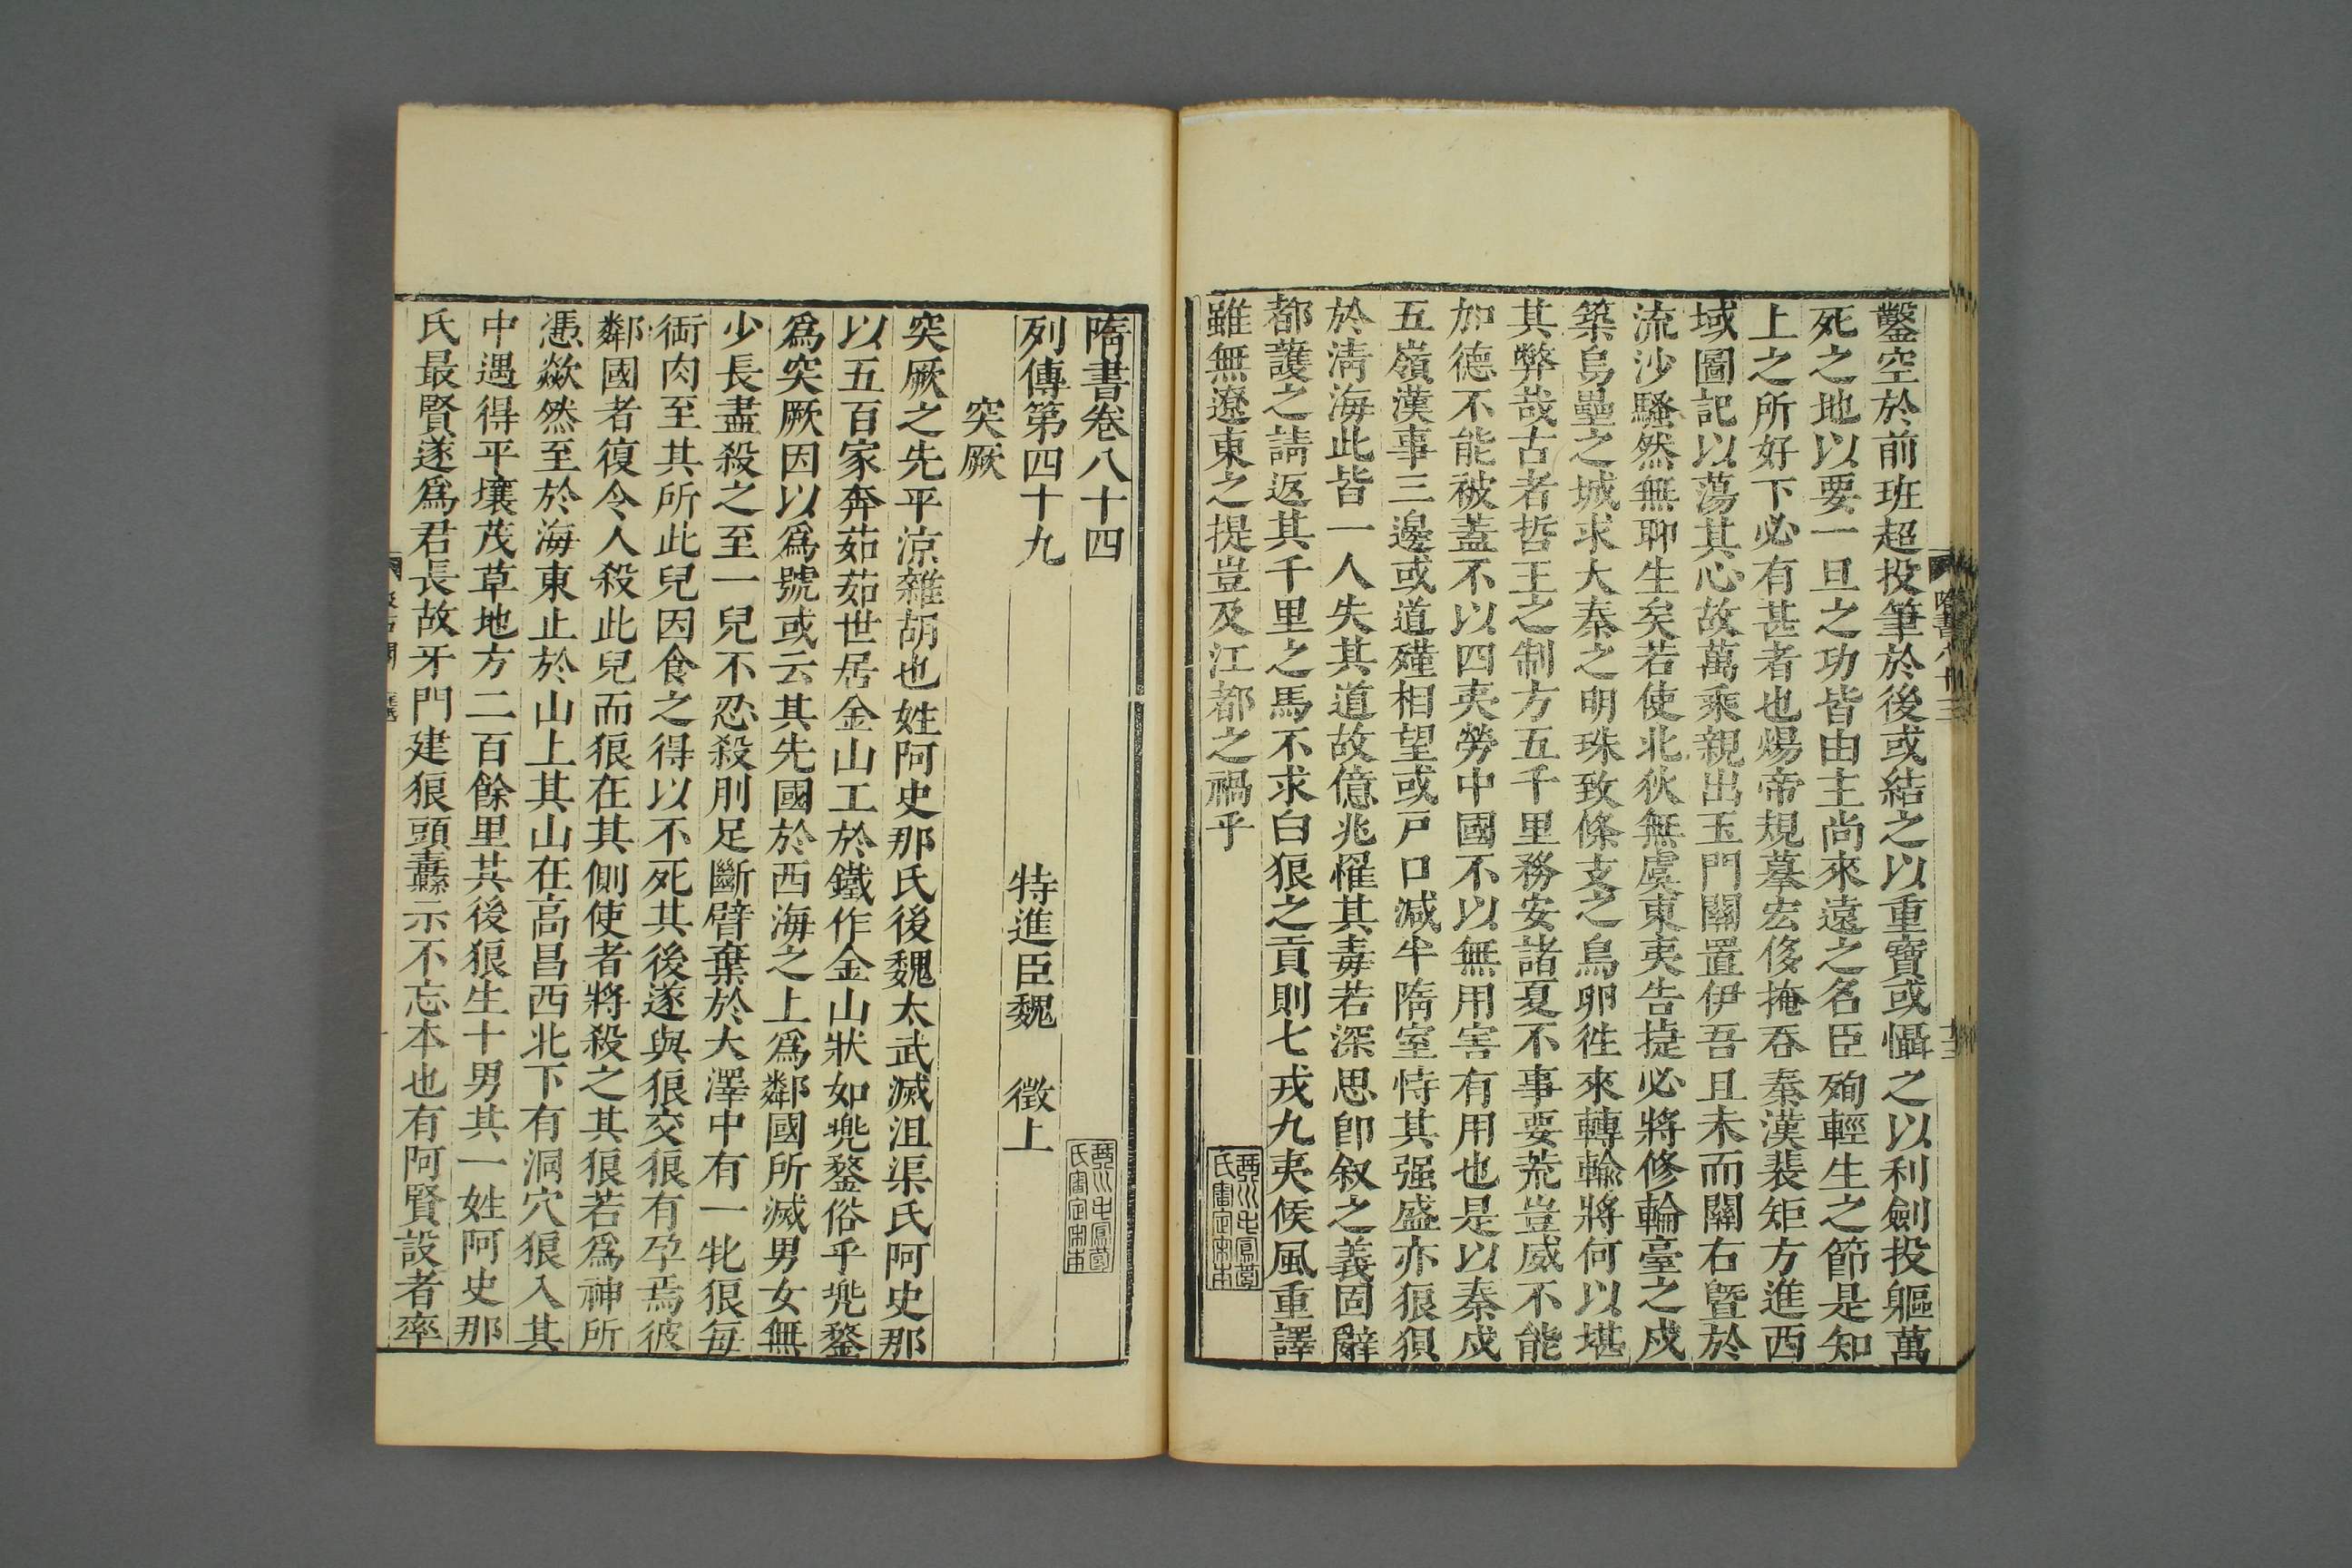 鑿空於前班超投筆於後或結之以重寶或懾之以利劍投軀萬
死之地以要一旦之功皆由主尚來遠之名臣殉輕生之節是知
上之所好下必有甚者也煬帝規摹宏侈掩吞秦漢裴矩方進西
域圖記以蕩其心故萬乘親出玉門關置伊吾且末而關右暨於
流沙騷然無聊生矣若使北狄無虞東夷告捷必將修輪臺之戍
築烏壘之城求大秦之明珠致條支之鳥卵往來轉輸將何以堪
其弊哉古者哲王之制方五千里務安諸夏不事要荒豈威不能
加德不能被蓋不以四夷勞中國不以無用害有用也是以秦戍
五嶺漢事三邊或道殣相望或戸口減半隋室恃其强盛亦狼狽
於淸海此皆一人失其道故億兆罹其毒若深思卽叙之義固辭
都護之請返其千里之馬不求白狼之貢則七戎九夷候風重譯
雖無遼東之捷豈及江都之禍乎
隋書卷八十四
列傳第四十九
特進臣魏 徵上
突厥
突厥之先平涼雜胡也姓阿史那氏後魏太武滅沮渠氏阿史那
以五百家奔茹茹世居金山工於鐵作金山狀如兠鍪俗乎兠鍪
爲突厥因以爲號或云其先國於西海之上爲鄰國所滅男女無
少長盡殺之至一兒不忍殺刖足斷臂棄於大澤中有一牝狼每
銜肉至其所此兒因食之得以不死其後遂與狼交狼有孕焉彼
鄰國者復令人殺此兒而狼在其側使者將殺之其狼若爲神所
憑歘然至於海東止於山上其山在高昌西北下有洞穴狼入其
中遇得平壤茂草地方二百餘里其後狼生十男其一姓阿史那
氏最賢遂爲君長故牙門建狼頭纛示不忘本也有阿賢設者率